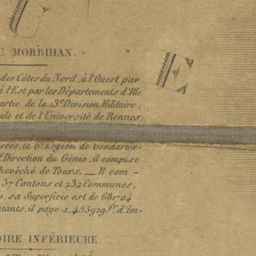 E MORBIHAN.
des Côtes du Nord, à l'Ouest par
à l'Est par les Départements d'Ille
artie de la 13.e Division Militaire,
ale et de l'Université de Rennes,
E
t Direction du Génie, il compose
hevêché de Tours. __ Il com-
37 Cantons et 232 Communes,
s, sa Superficie est de 681.24
itants, il paye
OIRE INFÉRIEURE